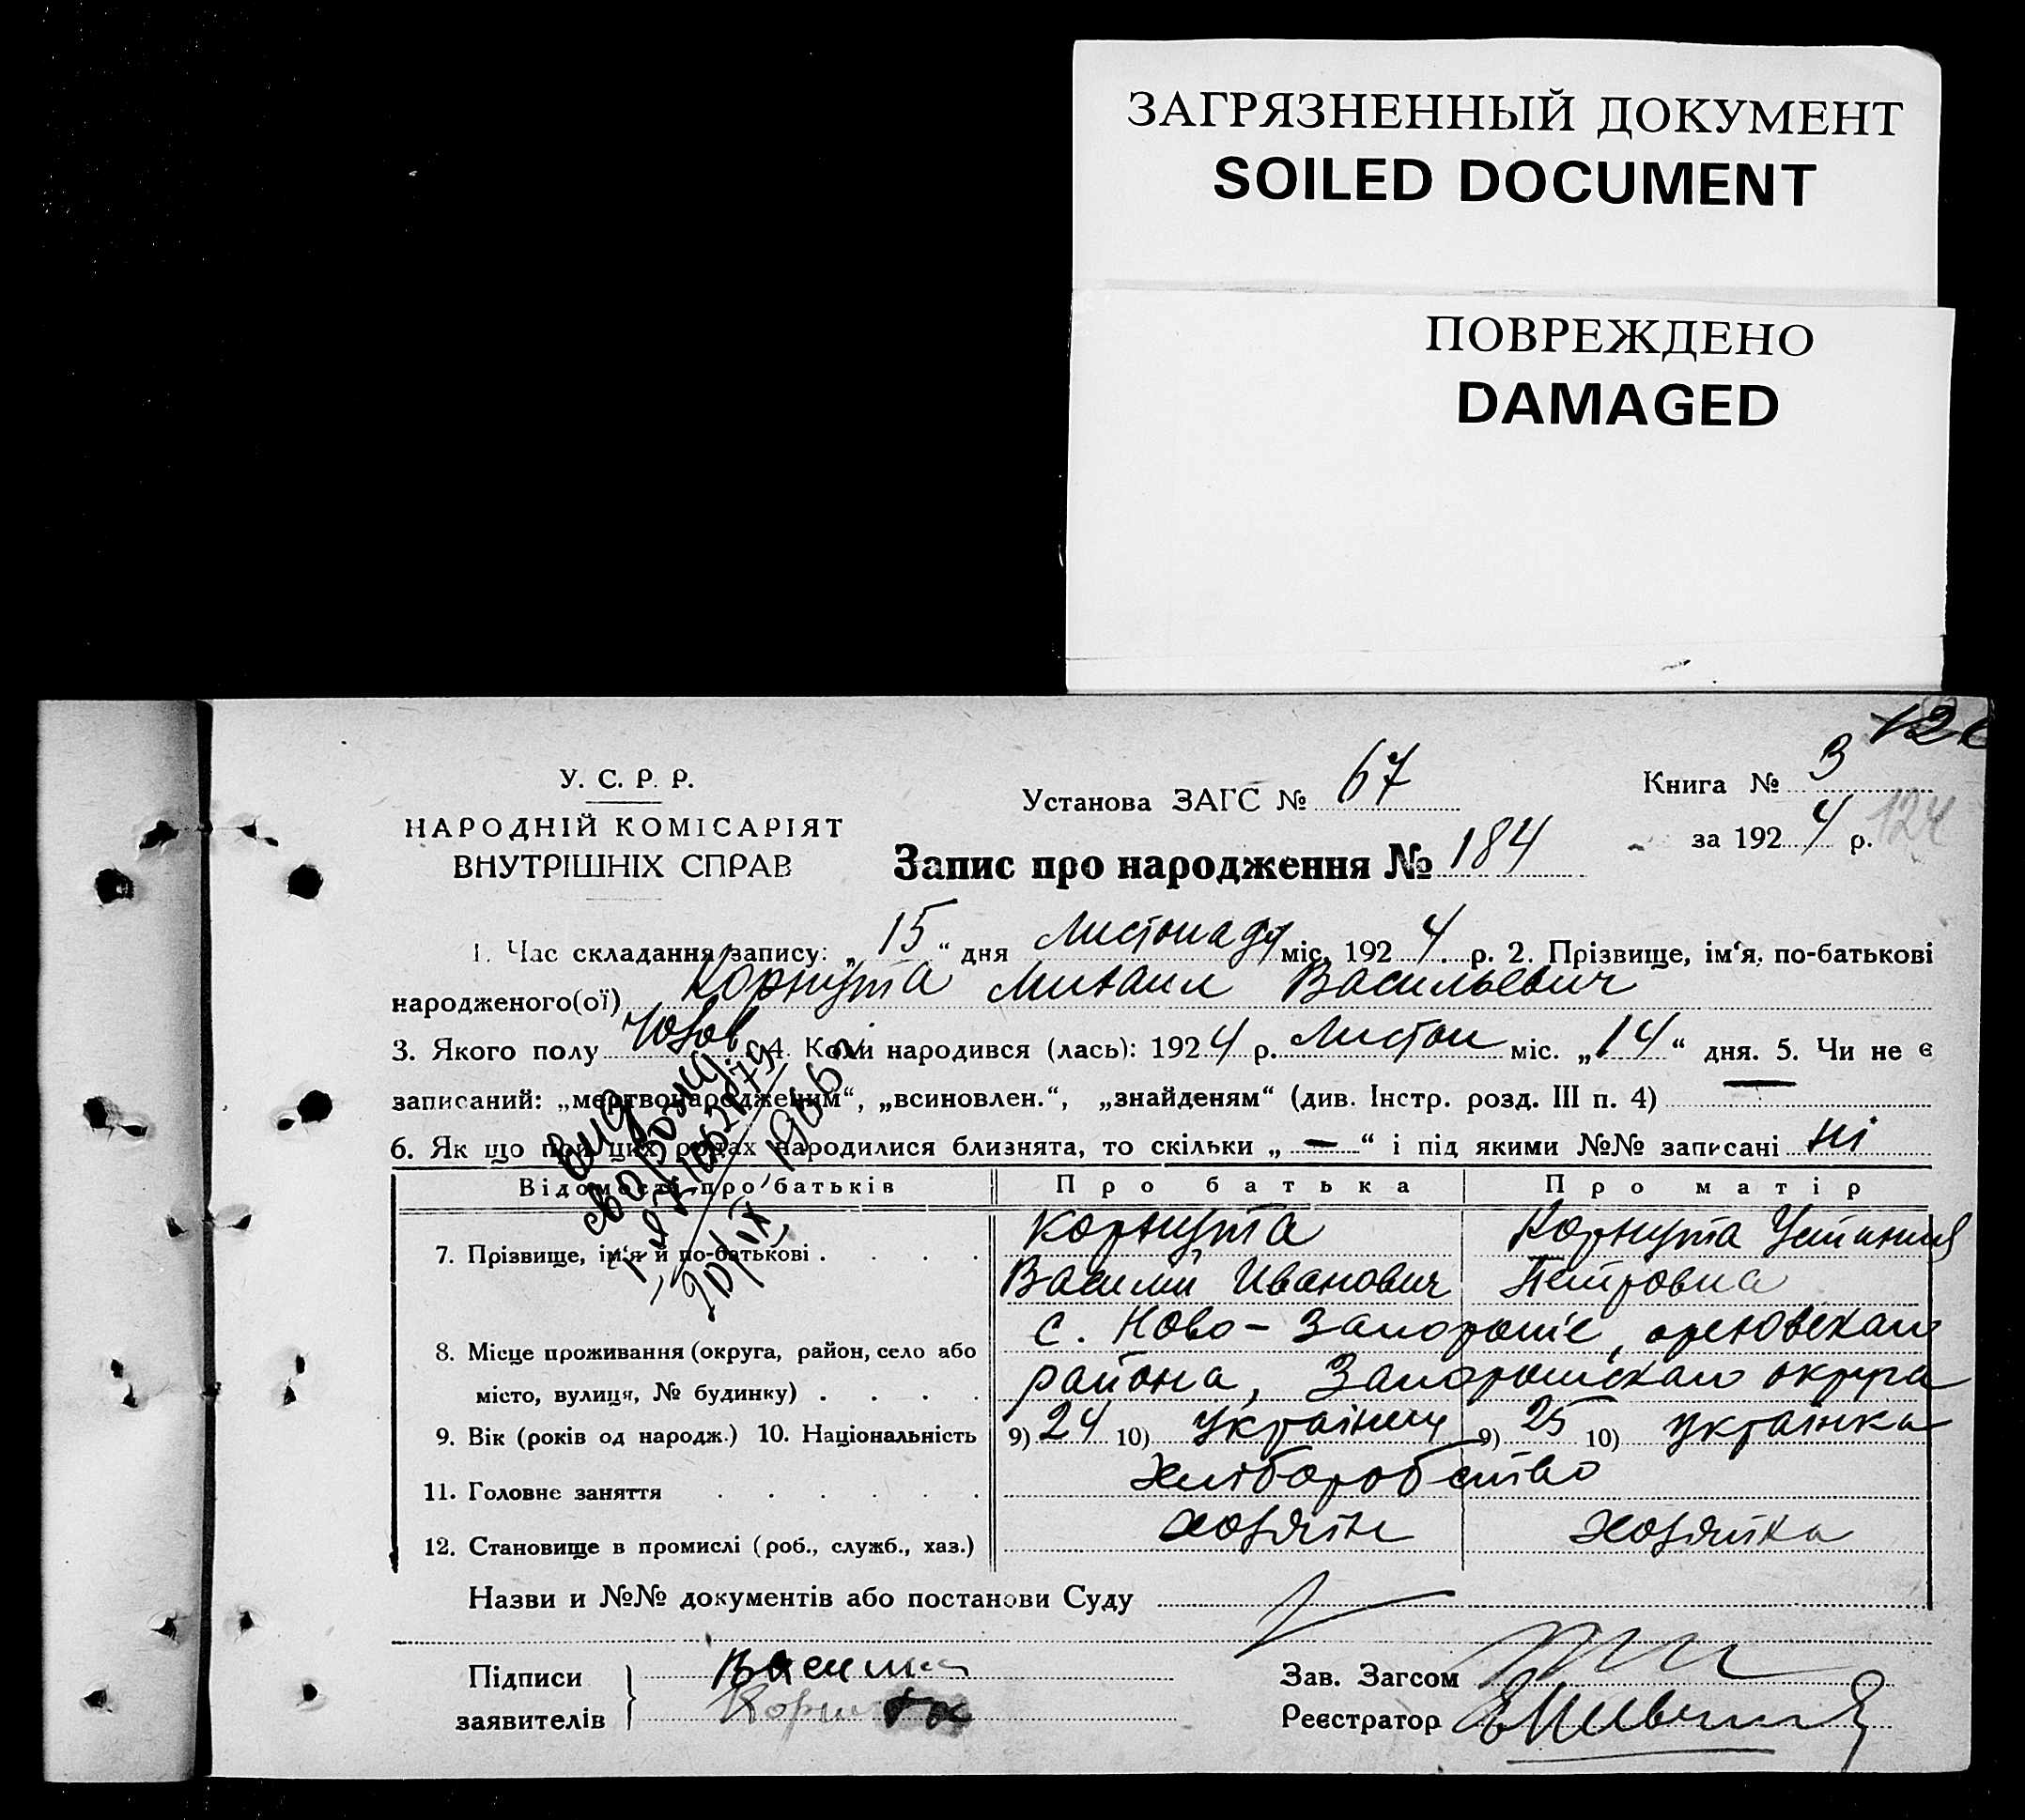 ЗАГРЯЗНЕННЫЙ ДОКУМЕНТ
SOILED DOCUMENT
ПОВРЕЖДЕНО
DAMAGED
У. С. Р. Р.
НАРОДНІЙ КОМІСАРІЯТ
ВНУТРІШНІХ СПРАВ
Установа ЗАГС № 67
Книга № 3
за 1924 р. 124
Запис про народження № 184
1. Час складання запису: „15“ дня Листопаду міс. 1924 р. 2. Прізвище, ім‘я, по-батькові
народженого(ої) Корнута Михаил Васильевич
3. Якого полу Чолов 4. Коли народився (лась): 1924 р. Листоп міс. „14“ дня. 5. Чи не є
записаний: „мертвонародженим“, „всиновлен.“, „знайденям“ (див. Інстр. розд. III п. 4) —
6. Як що при цих родах народилися близнята, то скільки „—“ і під якими №№ записані ні
Відомості про батьків Про батька Про матір
7. Прізвище, ім‘я й по-батькові . . . . Корнута Корнута Устиния
Василий Иванович Петровна
8. Місце проживання (округа, район, село або с. Ново-Запорожіе,
місто, вулиця, № будинку) . . . . района, округа
9. Вік (років од народж.) 10. Національність 9) 24 10) Українец 9) 25 10) українка
11. Головне заняття . . . . . . Хліборобство
12. Становище в промислі (роб., служб., хаз.) хозяїн хозяйка
Назви и №№ документів або постанови Суду
Підписи
заявителів
Зав. Загсом
Реєстратор